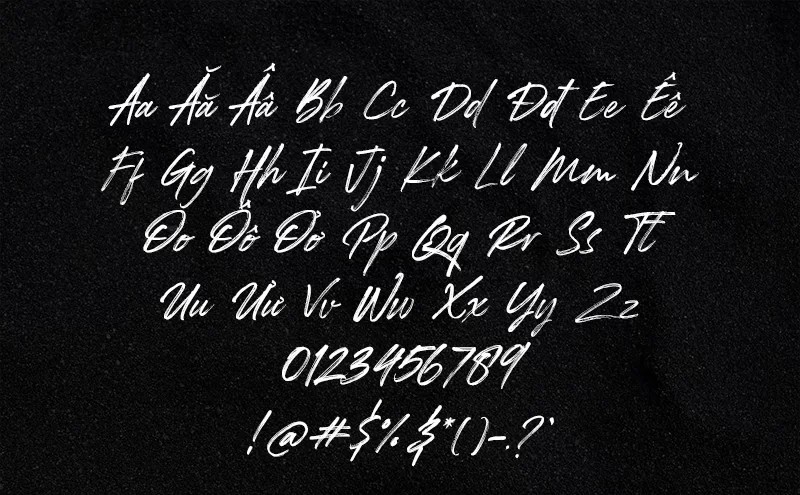 Aa Ăă Ââ Bb Cc Dd Đđ Ee Êê
Ff Gg Hh Ii Jj Kk Ll Mm Nn
Oo Ôô Ơơ Pp Qq Rr Ss Tt
Uu Ưư Vv Ww Xx Yy Zz
0123456789
!@#$%&*()-.?'